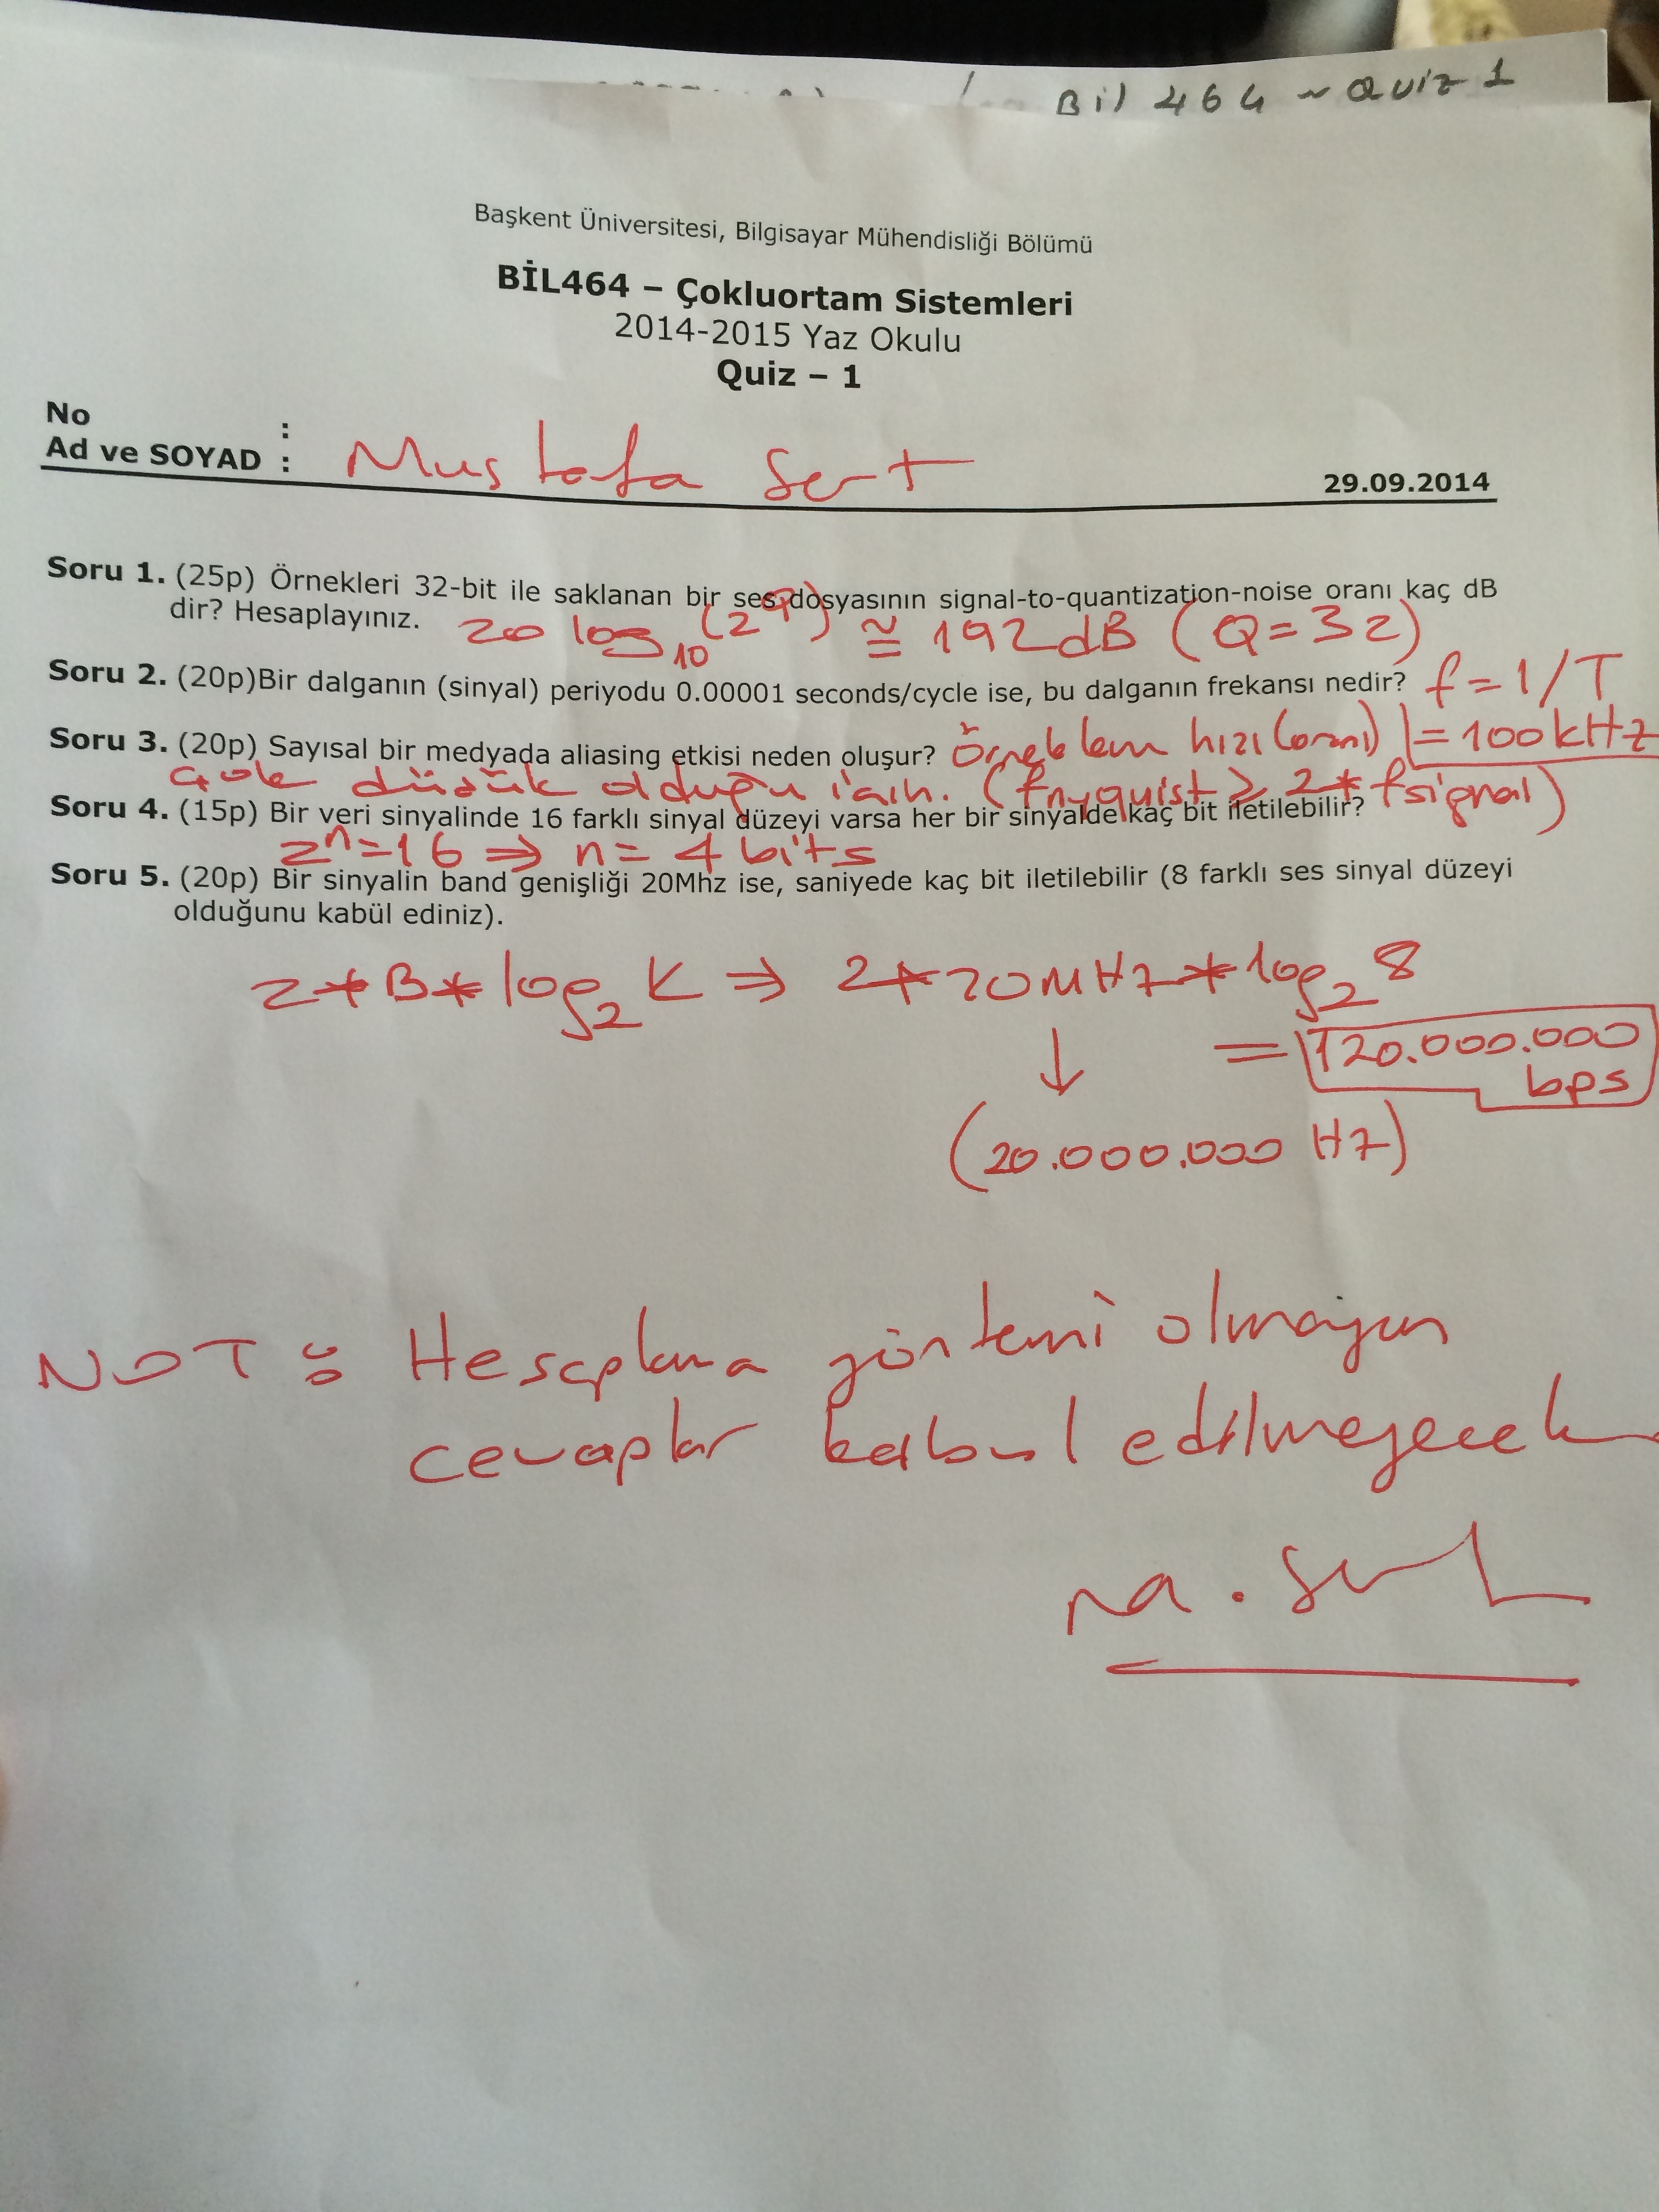 Bil 464 ~ Quiz 1
Başkent Üniversitesi, Bilgisayar Mühendisliği Bölümü
BİL464 – Çokluortam Sistemleri
2014-2015 Yaz Okulu
Quiz – 1
No :
Ad ve SOYAD : Mustafa Sert
29.09.2014
Soru 1. (25p) Örnekleri 32-bit ile saklanan bir ses dosyasının signal-to-quantization-noise oranı kaç dB
dir? Hesaplayınız. 20 log₁₀(2^Q) ≅ 192dB (Q=32)
Soru 2. (20p)Bir dalganın (sinyal) periyodu 0.00001 seconds/cycle ise, bu dalganın frekansı nedir? f=1/T
= 100kHz
Soru 3. (20p) Sayısal bir medyada aliasing etkisi neden oluşur? Örneklem hızı (oranı)
çok düşük olduğu için. (fnyquist ≥ 2*fsignal)
Soru 4. (15p) Bir veri sinyalinde 16 farklı sinyal düzeyi varsa her bir sinyalde kaç bit iletilebilir?
2ⁿ=16 ⇒ n= 4 bits
Soru 5. (20p) Bir sinyalin band genişliği 20Mhz ise, saniyede kaç bit iletilebilir (8 farklı ses sinyal düzeyi
olduğunu kabül ediniz).
2*B*log₂K ⇒ 2*20MHz*log₂8
↓ = 120.000.000
bps
(20.000.000 Hz)
NOT: Hesaplama yöntemi olmayan
cevaplar kabul edilmeyecek
m. Sert